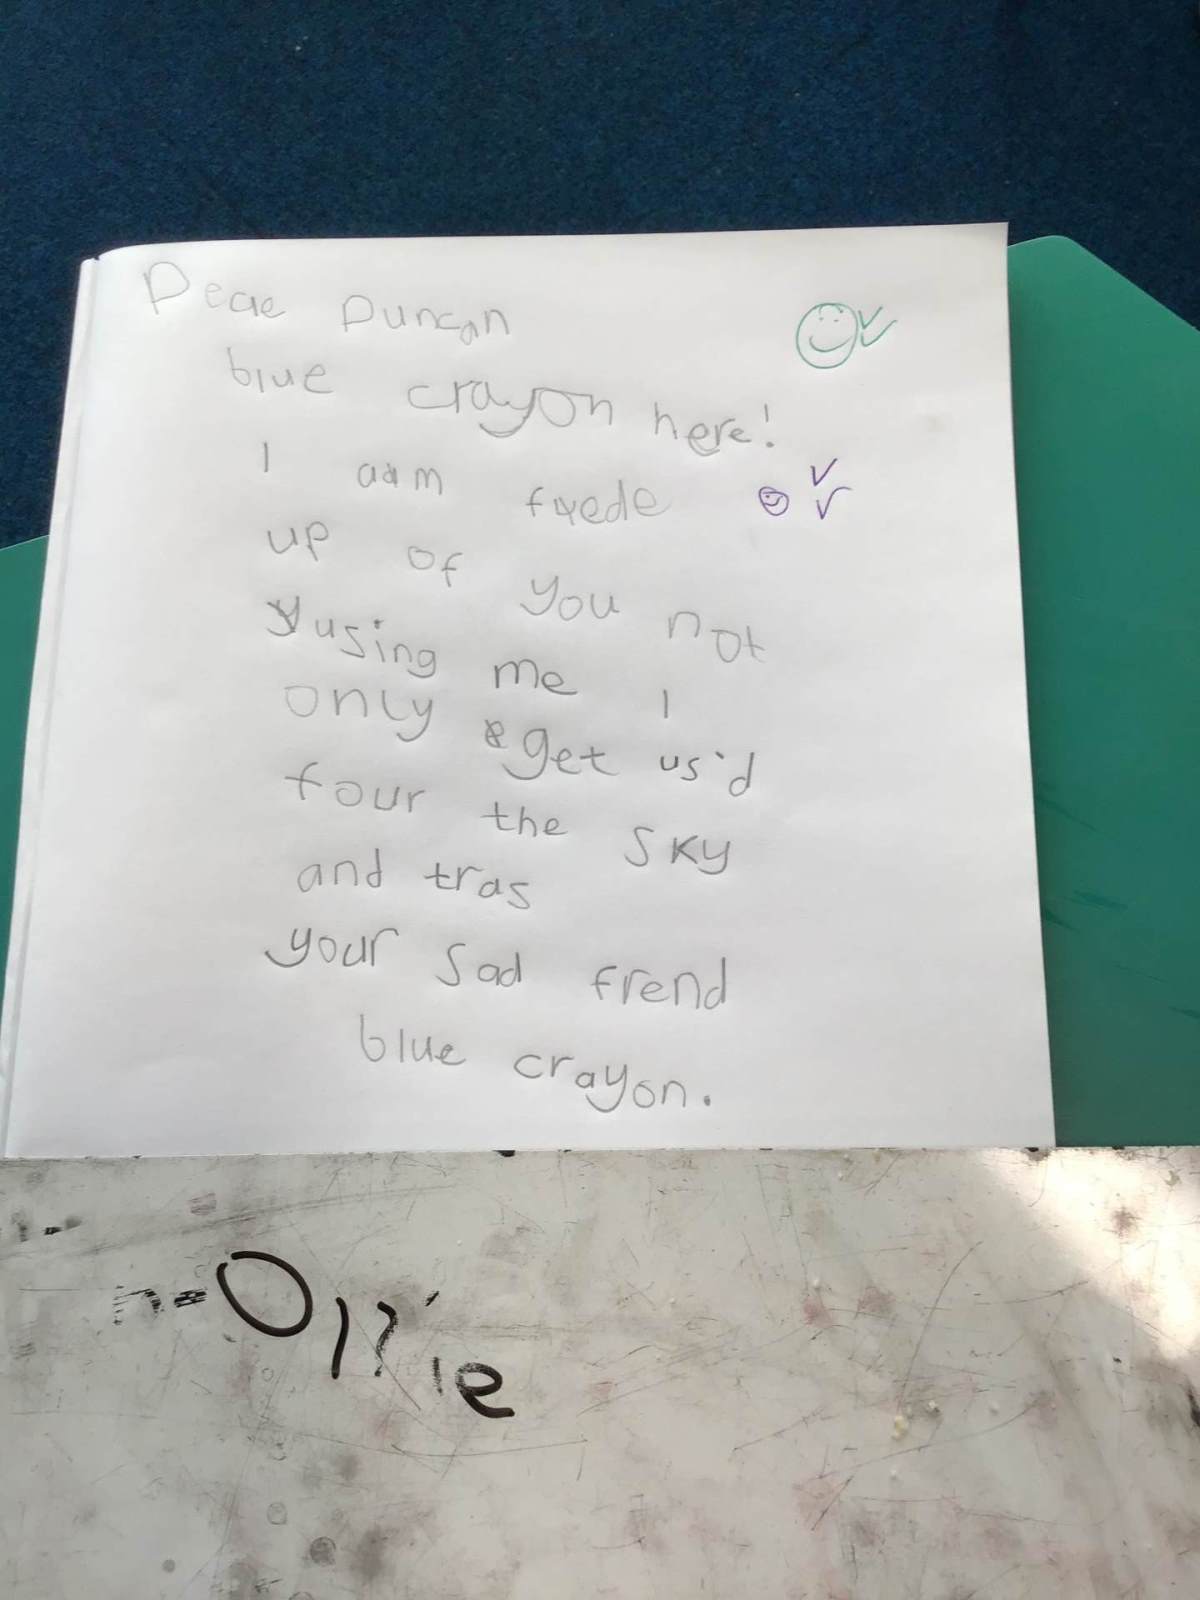 Deae Duncan
blue crayon here!
I aam fxede
up of you not
yusing me I
only eget us'd
four the sky
and tras
your sad frend
blue crayon.
Ollie